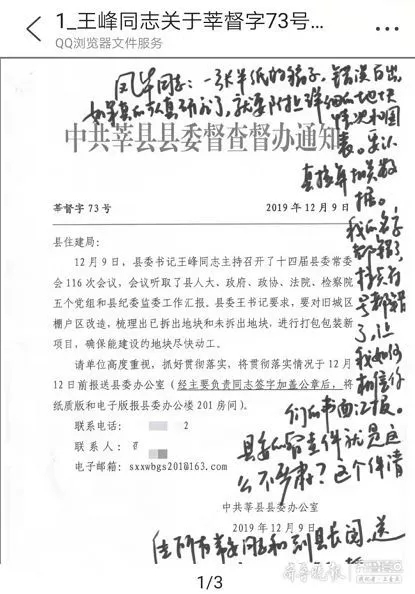 1_王峰同志关于莘督字73号...
QQ浏览器文件服务
同志：一张半纸的稿子，错误百出，
如果真的认真研究了，就要附上详细的地块
情况和图
表。要认
真核算相关数
据。
我的名字
都错了，
号都错
了，让
我如何
相信你
们的书面汇报。
县委的督查件就是这
么不严肃？这个件请
所有常委同志和副县长阅，送
中共莘县县委督查督办通知
莘督字 73 号
2019 年 12 月 9 日
县住建局：
12 月 9 日，县委书记王峰同志主持召开了十四届县委常委
会 116 次会议，会议听取了县人大、政府、政协、法院、检察院
五个党组和县纪委监委工作汇报。县委王书记要求，要对旧城区
棚户区改造，梳理出已拆出地块和未拆出地块，进行打包包装新
项目，确保能建设的地块尽快动工。
请单位高度重视，抓好贯彻落实，将贯彻落实情况于 12 月
12 日前报送县委办公室（经主要负责同志签字加盖公章后，将
纸质版和电子版报县委办公楼 201 房间）。
联系电话： 2
联 系 人：
电子邮箱：sxxwbgs2018@163.com
中共莘县县委办公室
2019 年 12 月 9 日
齐鲁晚报
1/3